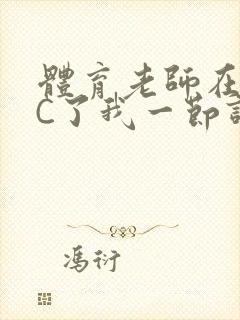 體育老師在
C了我一節
馮衍